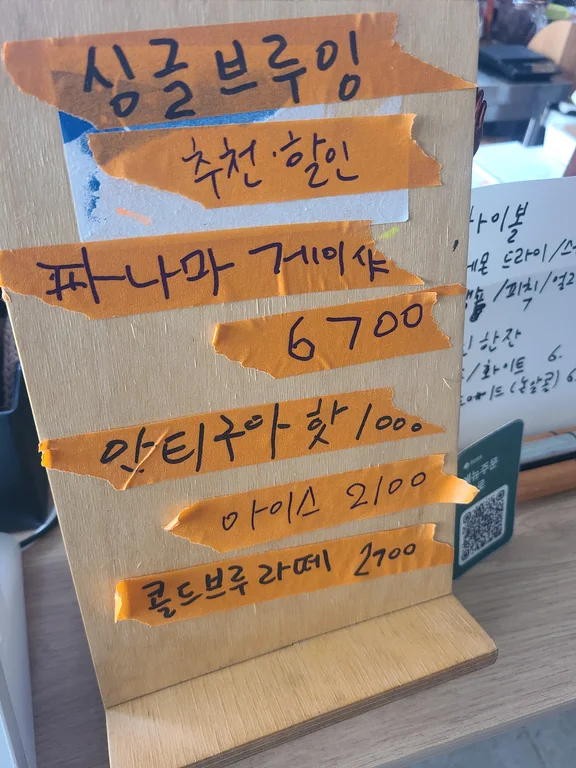 싱글브루잉
추천·할인
파나마 게이샤
6700
안티구아 핫 1000
아이스 2100
콜드브루라떼 2700
하이볼
레몬 드라이/스
/피치/얼그
한잔
/화이트 6.
(논알콜) 6
메뉴주문